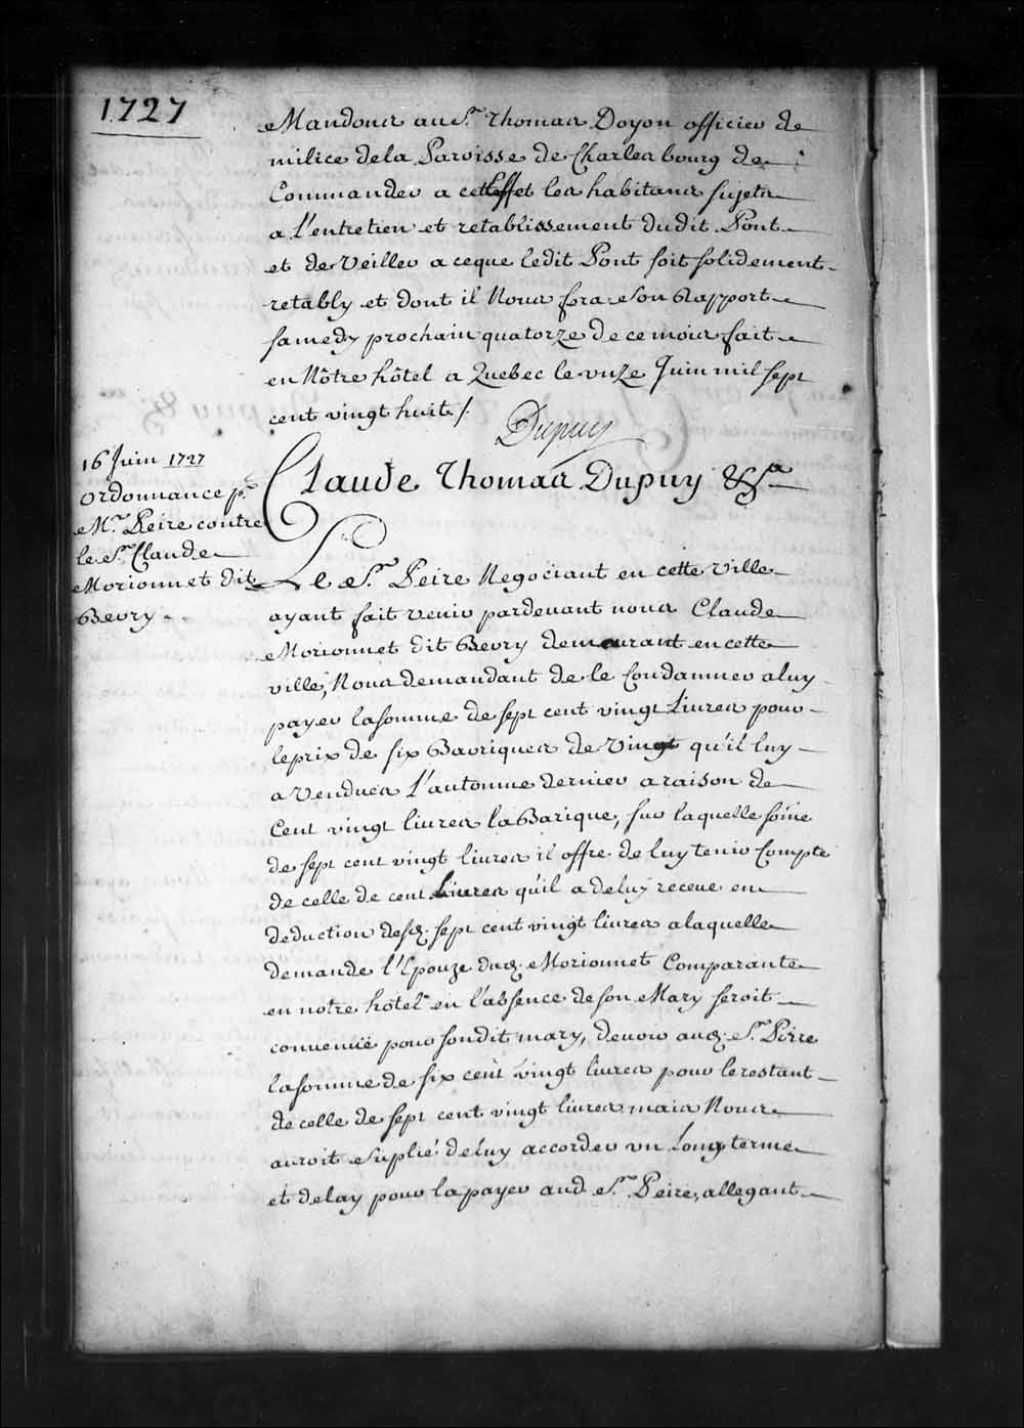 1727
Mandons au Sr. Thomas Doyon officier de
milice de la Paroisse de Charlesbourg de
Commander a cet Effet les habitans sujets
a L'entretien et retablissement du dit Pont
et de Veiller a ceque ledit Pont soit solidement
retably et dont il Nous fera son Rapport
samedy prochain quatorze de ce mois fait
en Nôtre hôtel a Quebec le unze Juin mil sept
cent vingt huit /.
Dupuy
16 Juin 1727
Ordonnance pr.
Mr. Peire contre
le Sr. Claude
Morionnet dit
Bevry..
Claude Thomas Dupuy &a
Le Sr. Peire Negociant en cette Ville
ayant fait venir pardevant nous Claude
Morionnet dit Bevry demeurant en cette
ville, Nous demandant de le Condamner a luy
payer la somme de sept cent vingt Livres pour
le prix de six Barriques de Vin qu'il luy
a Vendues L'automne dernier a raison de
Cent vingt livres la Barique, sur laquelle sõme
de sept cent vingt livres il offre de luy tenir Compte
de celle de cent Livres qu'il a deluy receue en
deduction desd. sept cent vingt livres a laquelle
demande l'Epouze dud. Morionnet Comparante
en notre hotel en l'absence de son Mary seroit
convenüe pour son dit mary, devoir aud. Sr. Peire
la somme de six cent vingt livres pour le restant
de celle de sept cent vingt livres mais Nous
auroit Suplié de luy accorder un Long terme
et delay pour la payer aud Sr. Peire, allegant